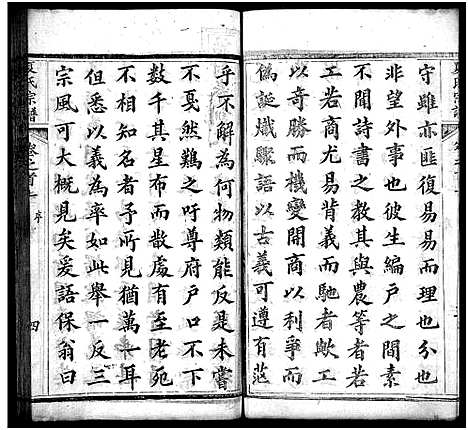 守雖亦匪復易易而理也分也
非望外事也彼生編戶之間素
不聞詩書之教其與農等者若
工若商尤易背義而馳者歟工
以奇勝而機變開商以利爭而
偽誕熾驟語以古義可遵有范
乎不解為何物類能反是未嘗
不戞然難之吁尊府戶口不下
數千其星布而散處有至老死
不相知名者予所見猶萬一耳
但悉以義為率如此舉一反三
宗風可大槪見矣爰語保翁曰
夏氏宗譜
卷之首
序
四